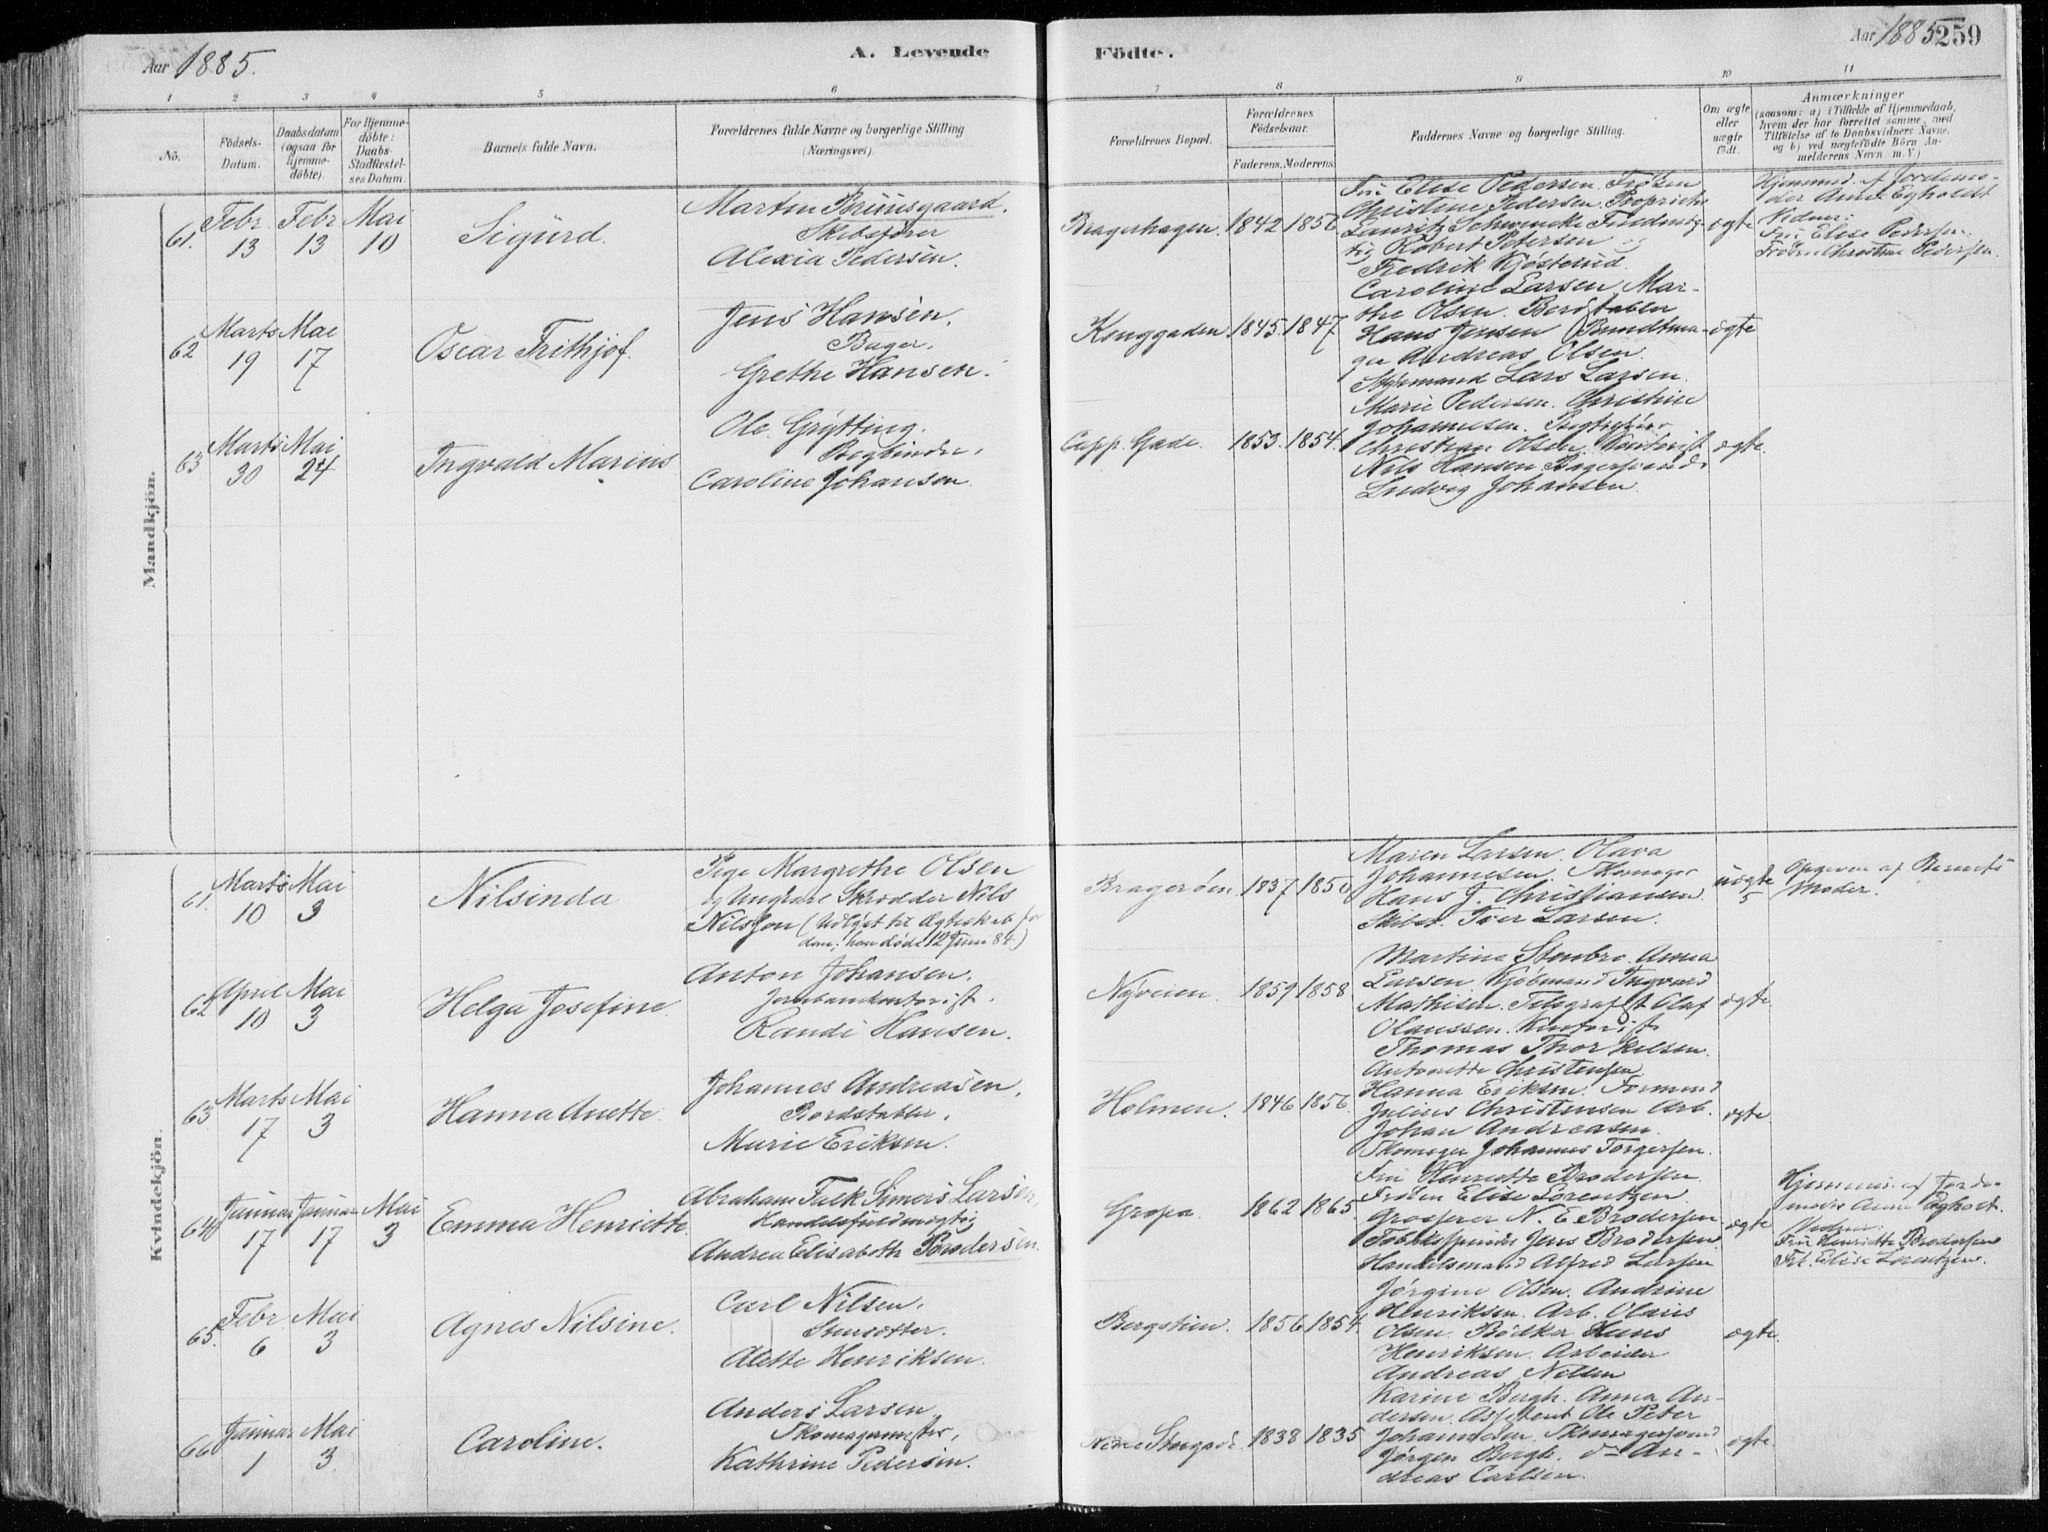 Aar 1885.
A. Levende Födte.
Aar 1885 259
1 2 3 4 5 6 7 8 9 10 11
No.
Födsels-Datum.
Daabsdatum (ogsaa for hjemme-döbte).
For Hjemme-döbte: Daabs-Stadfæstel-ses Datum.
Barnets fulde Navn.
Forældrenes fulde Navne og borgerlige Stilling (Næringsvei).
Forældrenes Bopæl.
Forældrenes Födselsaar.
Faderens. Moderens.
Faddernes Navne og borgerlige Stilling.
Om ægte eller uægte födt.
Anmærkninger
(saasom: a) i Tilfælde af Hjemmedaab,
hvem der har forrettet samme, med
Tilföielse af to Daabsvidners Navne,
og b) ved uægtefödte Börn An-
melderens Navn m. V.)
Mandkjön.
61. Febr. 13 Febr 13 Mai 10
Sigurd.
Martin Bruusgaard.
Skibsfører
Alexia Pedersen.
Bragerhagen. 1842 1856
Fru Elise Pedersen. Frøken
Christine Pedersen. Proprietær
Lauritz Schwencke Fuldmæg-
tig Robert Petersen og
Fredrik Kjøsterud.
ægte
Hjemmed. af Jordemo-
der Anne Egholdt
Vidner:
Fru Elise Pedersen.
Frøken Christine Pedersen.
62 Marts 19 Mai 17
Oscar Frithjof.
Jens Hansen.
Bager.
Grethe Hansen.
Konggaden. 1845. 1847
Caroline Larsen. Mar-
the Olsen. Bordstabler
Hans Jensen Bundtma-
ger Andreas Olsen.
Styrmand Lars Larsen
ægte
63 Marts 30 Mai 24
Ingvald Marius
Ole Grytting.
Bogbinder.
Caroline Johansen.
Capp. Gade. 1853. 1854.
Marie Pedersen. Christine
Johannesen.
Christian Olsen. Kontorist
Nils Hansen. Bagersvend
Ludvig Johansen.
ægte.
Kvindekjön.
61. Marts 10 Mai 3
Nilsinda
Pige Margrethe Olsen
og Ungkarl Skrædder Nils
Nilsson (Udlyst til Ægteskab før
dom; han døde 12 Juni 84)
Bragerøen. 1837 1850
Maren Larsen. Olava
Johannesen. Skomager
Hans J. Christiansen
Skibst. Iver Larsen.
uægte 5
Opgiven af Barnets
Moder.
62 April 10 Mai 3
Helga Josefine.
Anton Johansen.
Jernbanekontorist.
Randi Hansen.
Nyveien. 1859 1858
Martine Stenbro. Anna
Larsen. Kjøbmand Ingvard
Mathisen. Telegrafist Olaf
Olaussen. Kontorist
Thomas Thorkelsen.
ægte.
63 Marts 17 Mai 3
Hanna Anette.
Johannes Andreasen.
Bordstabler.
Marie Eriksen.
Holmen. 1846 1856.
Antonette Christensen
Hanna Eriksen. Formand
Julius Christensen Arb.
Johan Andreasen.
Skomager Johannes Torgersen.
ægte.
64 Januar 17 Januar 17 Mai 3
Emma Henriette.
Abraham Falk Simers Larsen,
Handelsfuldmægtig
Andrea Elisabeth Brodersen.
Gropa. 1862 1865
Fru Henriette Brodersen.
Frøken Elise Lorentzen.
Grosserer N. E Brodersen
Tobaksspinder Jens Brodersen.
Handelsmand Alfred Larsen
ægte
Hjemmed. af Jorde-
moder Anne Egholt.
Vidner:
Fru Henriette Brodersen
Frk. Elise Lorentzen.
65. Febr. 6 Mai 3
Agnes Nilsine.
Carl Nilsen.
Stensætter.
Alette Henriksen.
Bergstien. 1856 1854.
Jørgine Olsen. Andrine
Henriksen. Arb. Olaus
Olsen. Bødker Hans
Henriksen. Arbeider
Andreas Nilsen
ægte.
66 Januar 1 Mai 3.
Caroline.
Anders Larsen
Skomagermester,
Kathrine Pedersen.
Nedre Storgade. 1838 1835
Karine Bergh. Anna An-
dersen. Assistent Ole Peter
Johannesen. Skomagersvend
Jørgen Bergh. do An-
dreas Carlsen.
ægte.